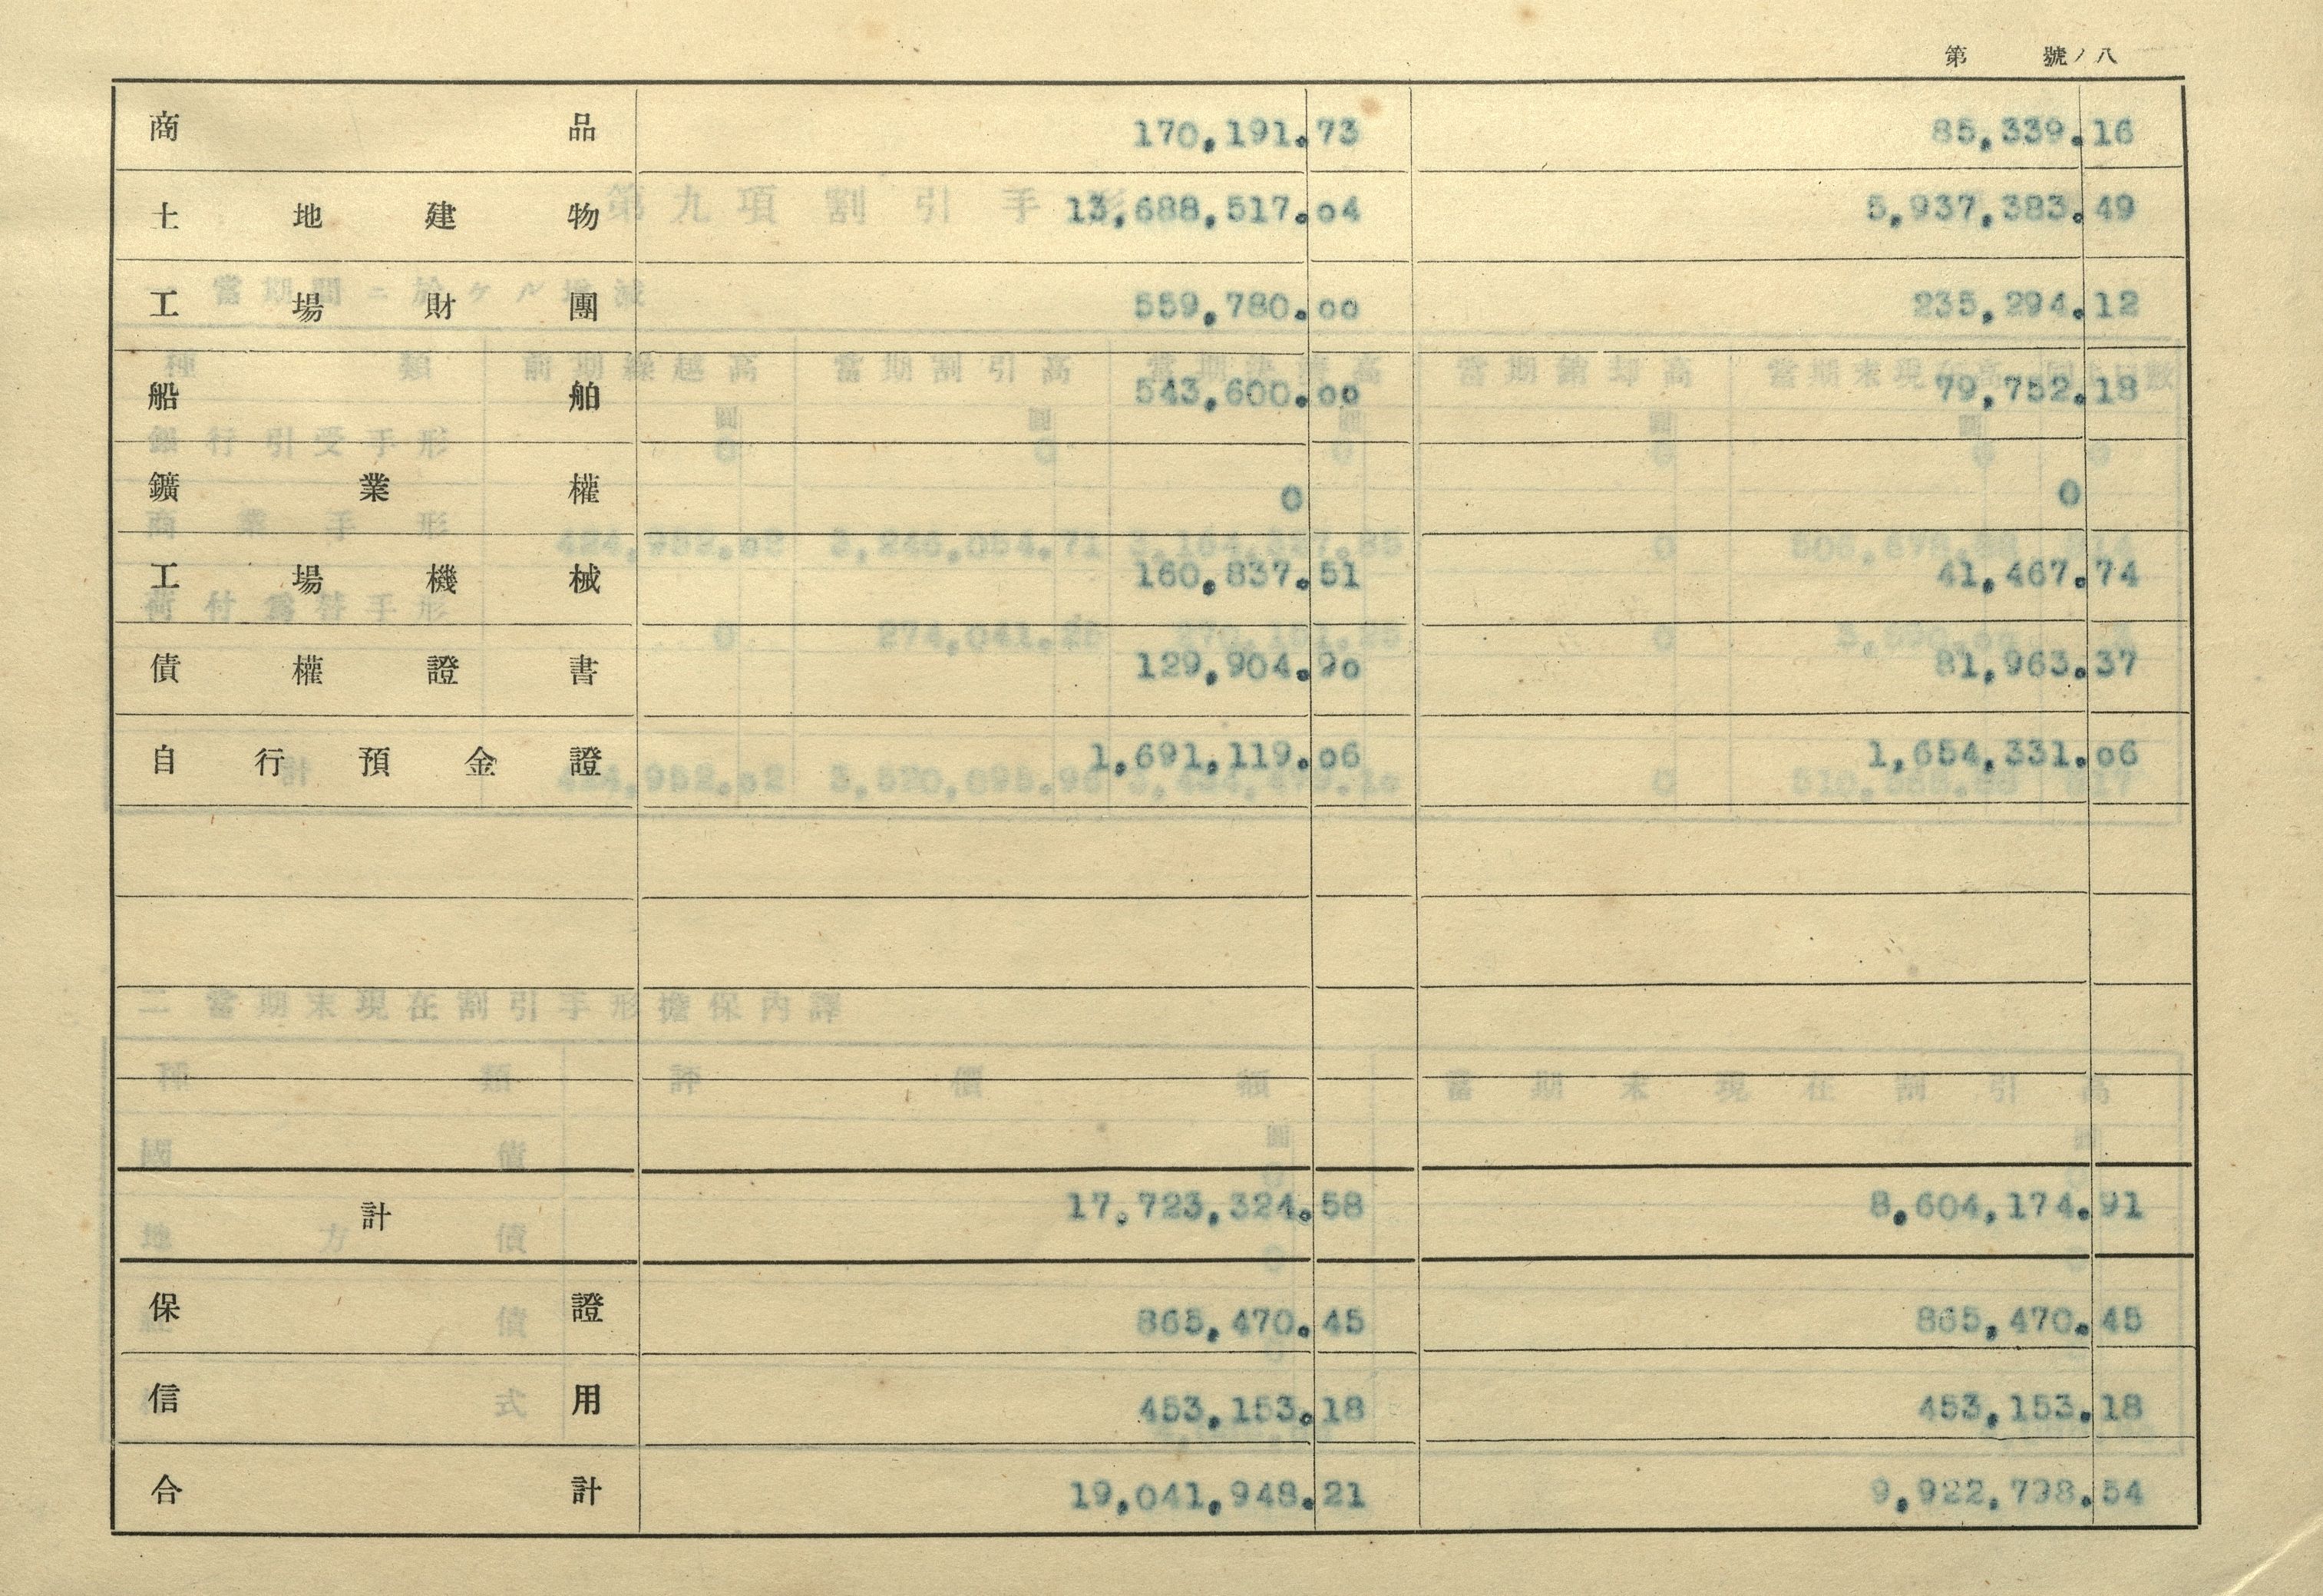 第 號ノ八
商品 170,191.73 85,339.16
土地建物 13,688,517.04 5,937,383.49
工場財團 559,780.00 235,294.12
船舶 543,600.00 79,752.18
鑛業權 0 0
工場機械 160,837.51 41,467.74
債權證書 129,904.90 81,963.37
自行預金證 1,691,119.06 1,654,331.06
計 17,723,324.58 8,604,174.91
保證 865,470.45 865,470.45
信用 453,153.18 453,153.18
合計 19,041,948.21 9,922,798.54